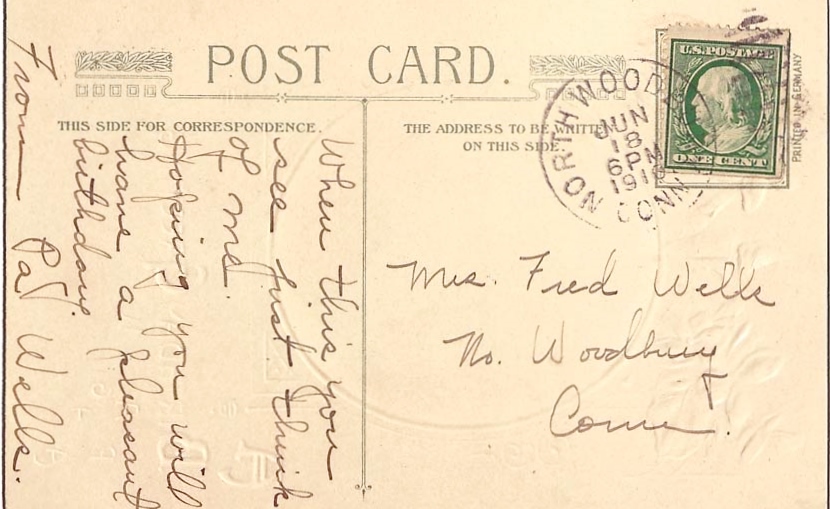 POST CARD.
THIS SIDE FOR CORRESPONDENCE.
THE ADDRESS TO BE WRITTEN
ON THIS SIDE.
U.S. POSTAGE
ONE CENT
PRINTED IN GERMANY
NORTH WOODBURY
JUN
18
6 PM
191
CONN
When this you
see just think
of me.
Hoping you will
have a pleasant
birthday.
From Pa Wells.
Mrs. Fred Wells
No. Woodbury
Conn.